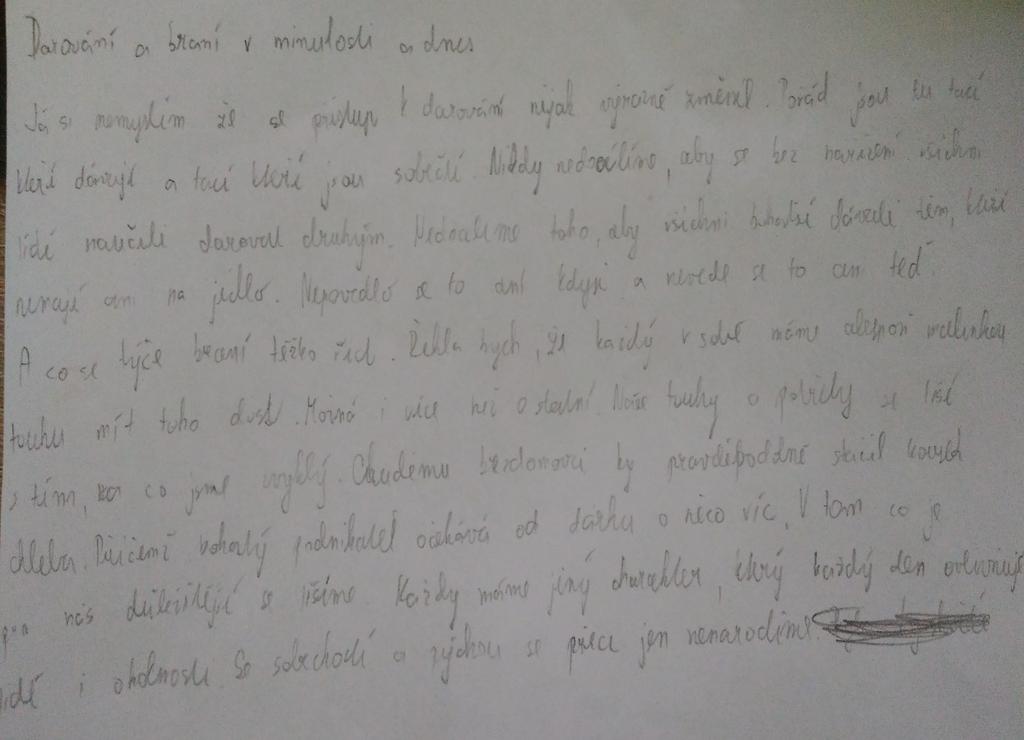 Darování a braní v minulosti a dnes
Já si nemyslím že se přístup k darování nijak výrazně změnil. Pořád jsou tu tací
kteří dávají a tací kteří jsou sobečtí. Nikdy nedocílíme, aby se bez nařízení všichni
lidé naučili darovat druhým. Nedocílíme toho, aby všichni bohatší dávali těm, kteří
nemají ani na jídlo. Nepovedlo se to ani kdysi a nevede se to ani teď.
A co se týče braní těžko říct. Řekla bych, že každý v sobě máme alespoň malinkou
touhu mít toho dost. Možná i více než ostatní. Naše touhy a potřeby se liší
s tím, na co jsme zvyklý. Chudému bezdomovci by pravděpodobně stačil kousek
chleba. Přičemž bohatý podnikatel očekává od dárku o něco víc. V tom co je
pro nás důležitější se lišíme. Každý máme jiný charakter, který každý den ovlivňují
lidé i okolnosti. Se sobectvím a pýchou se přeci jen nenarodíme.